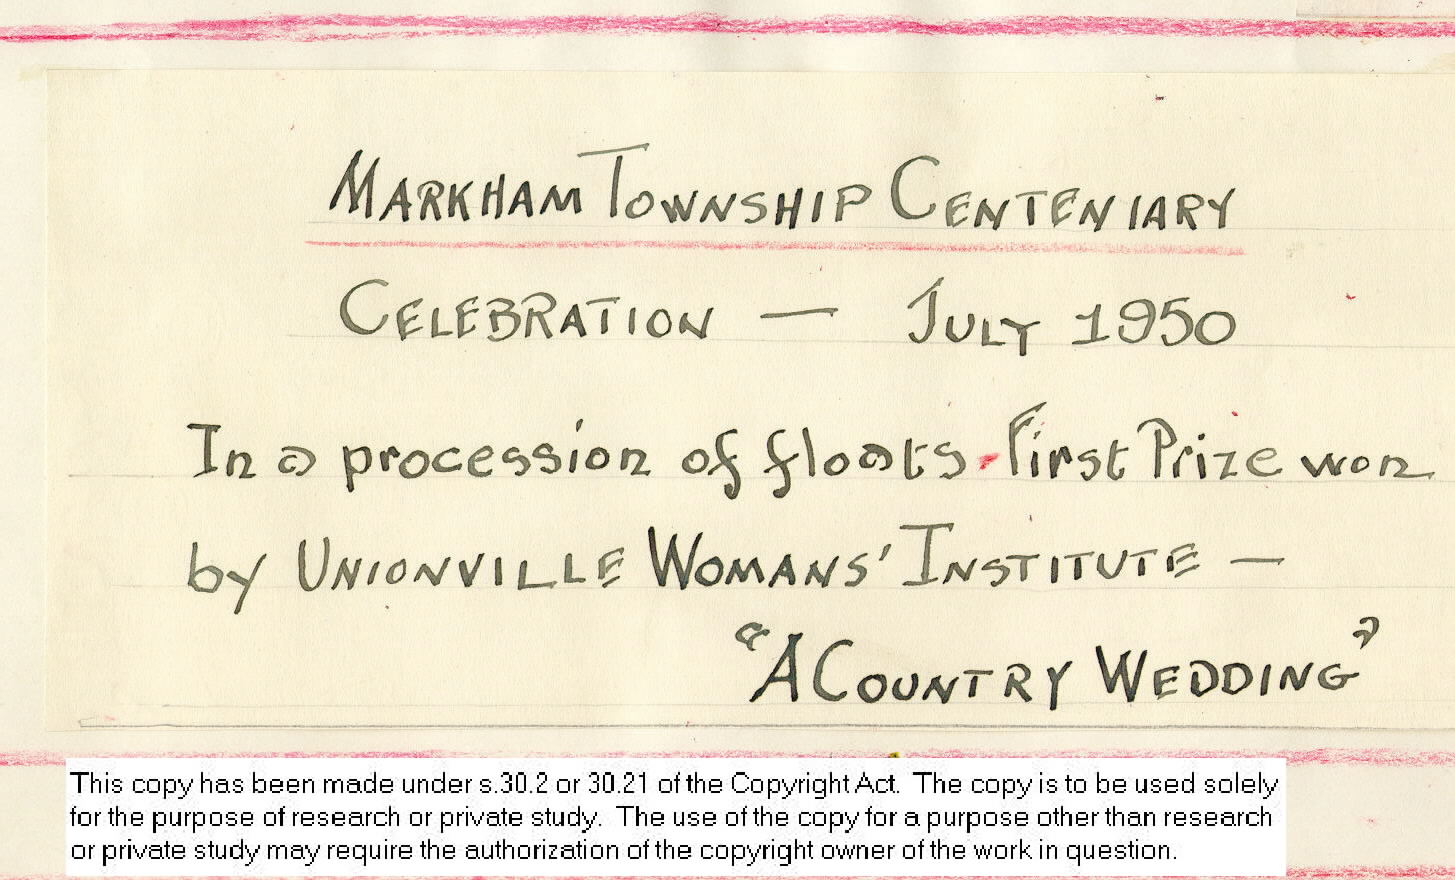 MARKHAM TOWNSHIP CENTENIARY
CELEBRATION — JULY 1950
In a procession of floats - First Prize won
by UNIONVILLE WOMANS' INSTITUTE —
"A COUNTRY WEDDING"
This copy has been made under s.30.2 or 30.21 of the Copyright Act. The copy is to be used solely
for the purpose of research or private study. The use of the copy for a purpose other than research
or private study may require the authorization of the copyright owner of the work in question.